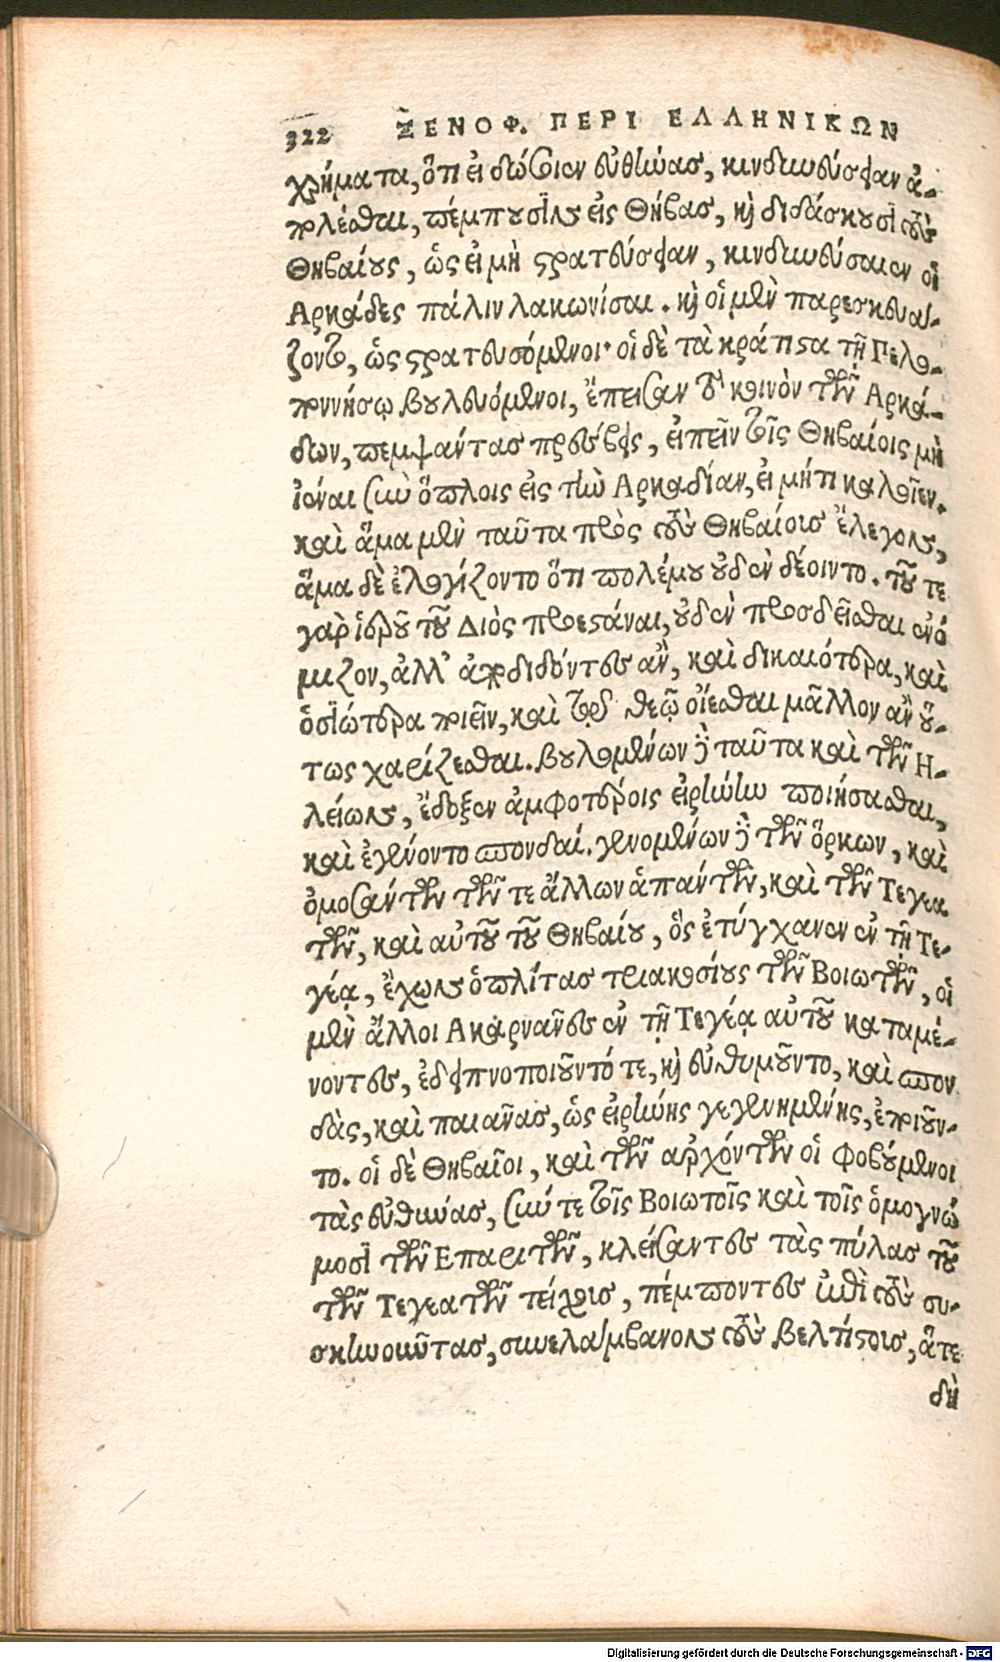 322 ΞΕΝΟΦ. ΠΕΡΙ ΕΛΛΗΝΙΚΩΝ
χρήματα, ὅτι εἰ δώσοιεν εὐθύνας, κινδυνεύσειαν ἀ-
πολέσθαι, πέμπουσιν εἰς Θήβας, καὶ διδάσκουσι τοὺς
Θηβαίους, ὡς εἰ μὴ στρατεύσειαν, κινδυνεύσαιεν οἱ
Αρκάδες πάλιν λακωνίσαι. καὶ οἱ μὲν παρεσκευά-
ζοντο, ὡς στρατευσόμενοι· οἱ δὲ τὰ κράτιστα τῇ Πελο-
ποννήσῳ βουλευόμενοι, ἔπεισαν τὸ κοινὸν τῶν Αρκά-
δων, πέμψαντας πρέσβεις, εἰπεῖν τοῖς Θηβαίοις μὴ
ἰέναι σὺν ὅπλοις εἰς τὴν Αρκαδίαν, εἰ μήτι καλοῖεν.
καὶ ἅμα μὲν ταῦτα πρὸς τοὺς Θηβαίους ἔλεγον,
ἅμα δὲ ἐλογίζοντο ὅτι πολέμου οὐδὲν δέοιντο. τοῦ τε
γὰρ ἱεροῦ τοῦ Διὸς προεστάναι, οὐδὲν προσδεῖσθαι ἐνό
μιζον, ἀλλ' ἀποδιδόντες ἂν, καὶ δικαιότερα, καὶ
ὁσιώτερα ποιεῖν, καὶ τῷ θεῷ οἴεσθαι μᾶλλον ἂν οὕ-
τως χαρίζεσθαι. βουλομένων δὲ ταῦτα καὶ τῶν Η-
λείων, ἔδοξεν ἀμφοτέροις εἰρήνην ποιήσασθαι,
καὶ ἐγένοντο σπονδαί. γενομένων δὲ τῶν ὅρκων, καὶ
ὀμοσάντων τῶν τε ἄλλων ἁπάντων, καὶ τῶν Τεγεα
τῶν, καὶ αὐτοῦ τοῦ Θηβαίου, ὃς ἐτύγχανεν ἐν τῇ Τε-
γέᾳ, ἔχων ὁπλίτας τριακοσίους τῶν Βοιωτῶν, οἱ
μὲν ἄλλοι Ακαρνᾶνες ἐν τῇ Τεγέᾳ αὐτοῦ καταμέ-
νοντες, ἐδειπνοποιοῦντό τε, καὶ εὐθυμοῦντο, καὶ σπον
δὰς, καὶ παιᾶνας, ὡς εἰρήνης γεγενημένης, ἐποιοῦν-
το. οἱ δὲ Θηβαῖοι, καὶ τῶν ἀρχόντων οἱ φοβούμενοι
τὰς εὐθύνας, σύν τε τοῖς Βοιωτοῖς καὶ τοῖς ὁμογνώ
μοσι τῶν Επαριτῶν, κλείσαντες τὰς πύλας τοῦ
τῶν Τεγεατῶν τείχους, πέμποντες ἐπὶ τοὺς συ-
σκηνοῦντας, συνελάμβανον τοὺς βελτίστους, ἅτε
δὴ
Digitalisierung gefördert durch die Deutsche Forschungsgemeinschaft - DFG